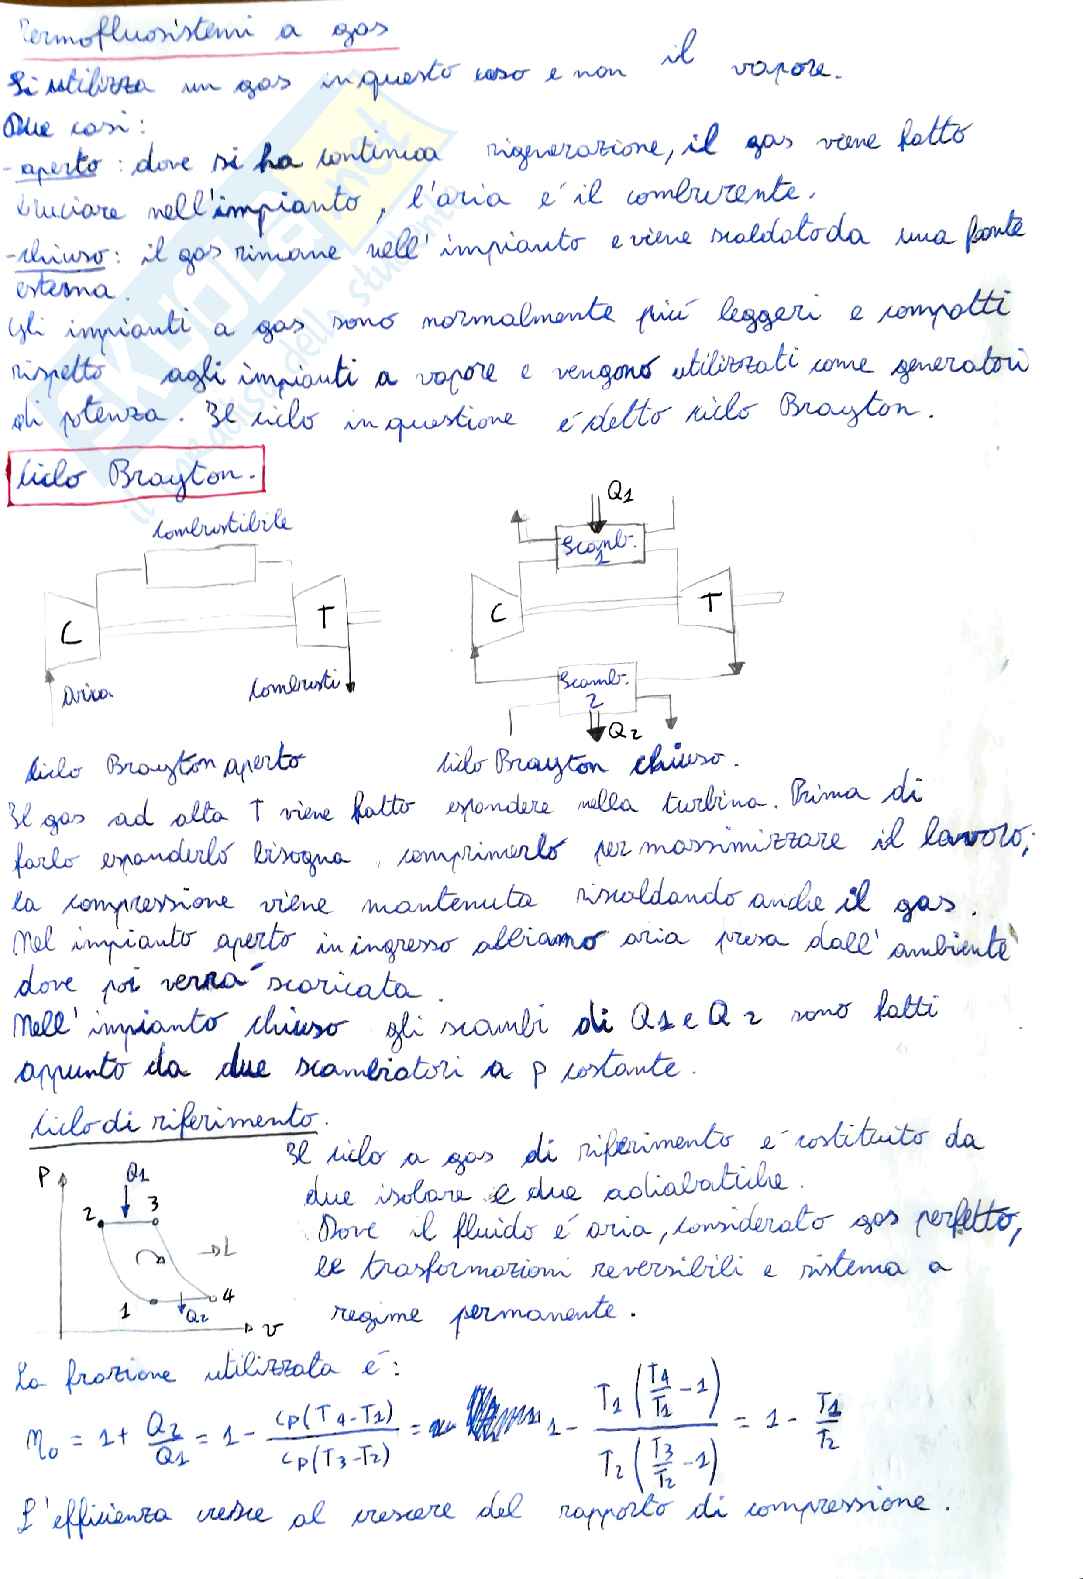 Termofluosistemi a gas
Si utilizza un gas in questo caso e non il vapore.
Due casi:
- aperto: dove si ha continua rigenerazione, il gas viene fatto
bruciare nell'impianto, l'aria é il comburente.
- chiuso: il gas rimane nell'impianto e viene scaldato da una fonte
esterna.
Gli impianti a gas sono normalmente piú leggeri e compatti
rispetto agli impianti a vapore e vengono utilizzati come generatori
di potenza. Il ciclo in questione é detto ciclo Brayton.
Ciclo Brayton.
Combustibile
C
T
Aria
Combusti
Q1
Scamb.
1
C
T
Scamb.
2
Q2
Ciclo Brayton aperto
Ciclo Brayton chiuso.
Il gas ad alta T viene fatto espandere nella turbina. Prima di
farlo espanderlo bisogna comprimerlo per massimizzare il lavoro;
la compressione viene mantenuta riscaldando anche il gas.
Nel impianto aperto in ingresso abbiamo aria presa dall'ambiente
dove poi verrá scaricata.
Nell'impianto chiuso gli scambi di Q1 e Q2 sono fatti
appunto da due scambiatori a p costante.
Ciclo di riferimento.
Il ciclo a gas di riferimento é costituito da
due isobare e due adiabatiche.
Dove il fluido é aria, considerato gas perfetto,
le trasformazioni reversibili e sistema a
regime permanente.
P
Q1
2
3
L
1
4
Q2
v
La frazione utilizzata é:
η₀ = 1 + Q2/Q1 = 1 - cp(T4-T1)/cp(T3-T2) = 1 - T1(T4/T1 - 1)/T2(T3/T2 - 1) = 1 - T1/T2
L'efficienza cresce al crescere del rapporto di compressione.
SKUOLA.net
il paradiso dello studente